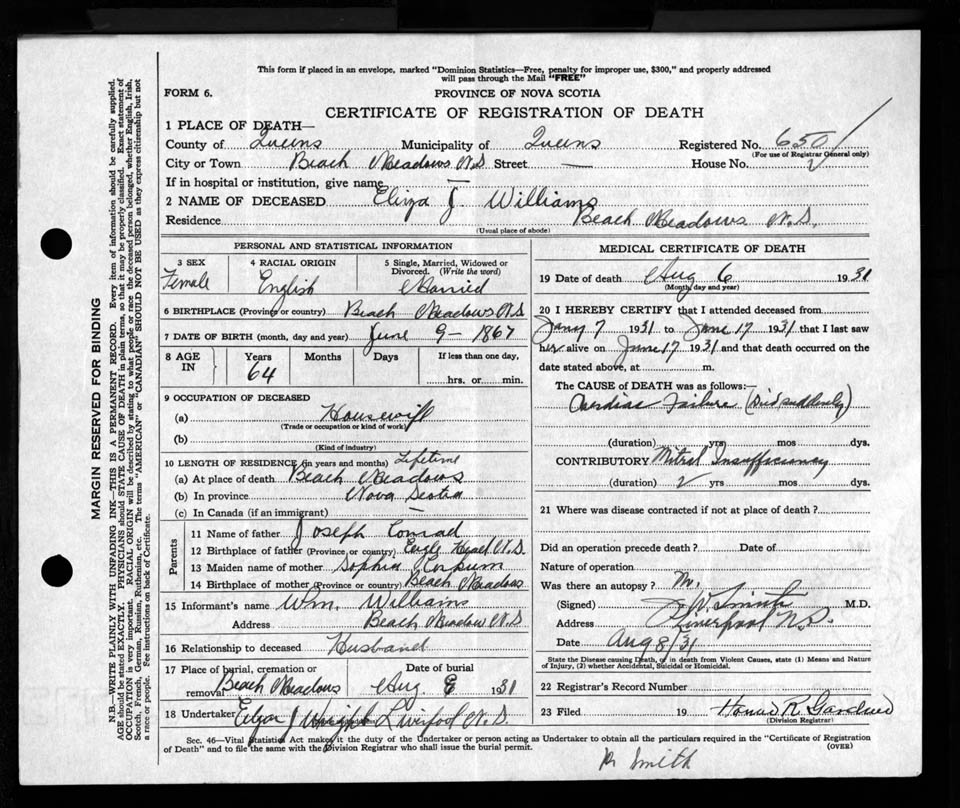 This form if placed in an envelope, marked "Dominion Statistics—Free, penalty for improper use, $300," and properly addressed
will pass through the Mail "FREE"
FORM 6.
PROVINCE OF NOVA SCOTIA
CERTIFICATE OF REGISTRATION OF DEATH
1 PLACE OF DEATH—
County of Queens Municipality of Queens Registered No. 650
(For use of Registrar General only)
City or Town Beach Meadows N.S. Street — House No.
If in hospital or institution, give name —
2 NAME OF DECEASED Eliza J. Williams
Residence Beach Meadows N.S.
(Usual place of abode)
PERSONAL AND STATISTICAL INFORMATION
3 SEX 4 RACIAL ORIGIN 5 Single, Married, Widowed or Divorced. (Write the word)
Female English Married
6 BIRTHPLACE (Province or country) Beach Meadows N.S
7 DATE OF BIRTH (month, day and year) June 9 - 1867
8 AGE IN Years Months Days If less than one day,
64 hrs. or min.
9 OCCUPATION OF DECEASED
(a) Housewife
(Trade or occupation or kind of work)
(b)
(Kind of industry)
10 LENGTH OF RESIDENCE (in years and months) Lifetime
(a) At place of death Beach Meadows
(b) In province Nova Scotia
(c) In Canada (if an immigrant) —
Parents
11 Name of father Joseph Conrad
12 Birthplace of father (Province or country) Eagle Head N.S.
13 Maiden name of mother Sophia Corkum
14 Birthplace of mother (Province or country) Beach Meadows
15 Informant's name Wm. Williams
Address Beach Meadow N.S
16 Relationship to deceased Husband
17 Place of burial, cremation or removal Beach Meadows Date of burial Aug. 8 1931
18 Undertaker Liverpool N.S.
MEDICAL CERTIFICATE OF DEATH
19 Date of death Aug 6 1931
(Month, day and year)
20 I HEREBY CERTIFY that I attended deceased from
Jany 7 1931 to June 17 1931 that I last saw
her alive on June 17 1931 and that death occurred on the
date stated above, at m.
The CAUSE of DEATH was as follows:—
Cardiac Failure (Died suddenly)
(duration) yrs mos dys.
CONTRIBUTORY Mitral Insufficiency
(duration) 2 yrs mos dys.
21 Where was disease contracted if not at place of death?
Did an operation precede death? Date of
Nature of operation
Was there an autopsy? No.
(Signed) J. W. Smith M.D.
Address Liverpool N.S.
Date Aug 8/31
State the Disease causing Death, or in death from Violent Causes, state (1) Means and Nature
of Injury, (2) whether Accidental, Suicidal or Homicidal.
22 Registrar's Record Number
23 Filed 19 R. Gardner
(Division Registrar)
Sec. 46—Vital Statistics Act makes it the duty of the Undertaker or person acting as Undertaker to obtain all the particulars required in the "Certificate of Registration
of Death" and to file the same with the Division Registrar who shall issue the burial permit.
(OVER)
Smith
MARGIN RESERVED FOR BINDING
N.B.—WRITE PLAINLY WITH UNFADING INK—THIS IS A PERMANENT RECORD. Every item of information should be carefully supplied.
AGE should be stated EXACTLY. PHYSICIANS should STATE CAUSE OF DEATH in plain terms, so that it may be properly classified. Exact statement of
OCCUPATION is very important. RACIAL ORIGIN will be described by stating to what people or race the deceased person belonged, whether English, Irish,
Scotch, French, German, Russian, Ruthenian, etc. The terms "AMERICAN" or "CANADIAN" SHOULD NOT BE USED as they express citizenship but not
a race or people. See instructions on back of Certificate.